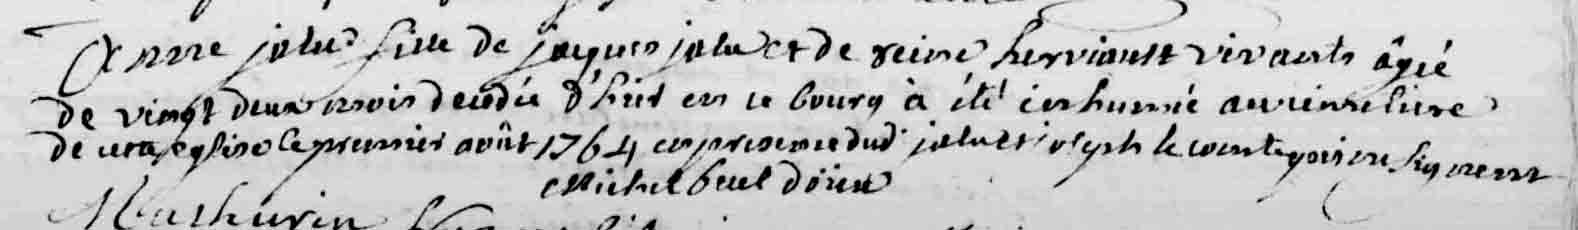 Anne jalu fille de jaques jalu et de reine herviault vivants âgée
de vingt deux mois decedée d'hier en ce bourg à été inhumée au cimetiere
de cette eglise le premier août 1764 en presence dud. jalu et joseph le comte qui ne signent
Michel buel doien
Mathurin